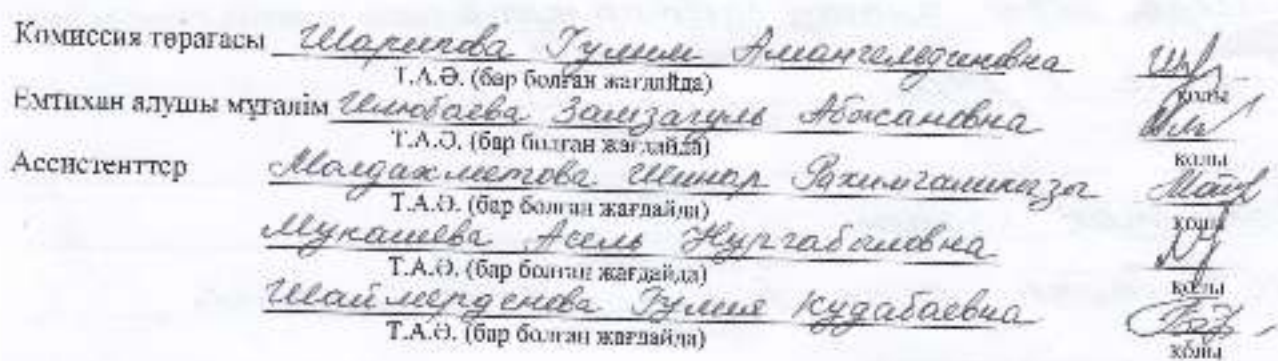 Комиссия төрағасы Шарипова Гулим Амангелдиновна
Т.А.Ә. (бар болған жағдайда) қолы
Емтихан алушы мұғалім Шлюбаева Замзагуль Абжсановна
Т.А.Ә. (бар болған жағдайда) қолы
Ассистенттер Молдахметова Шинар Рахимғалиқызы
Т.А.Ә. (бар болған жағдайда) қолы
Мукашева Асель Нургабыловна
Т.А.Ә. (бар болған жағдайда) қолы
Шаймерденова Гулия Кудабаевна
Т.А.Ә. (бар болған жағдайда) қолы